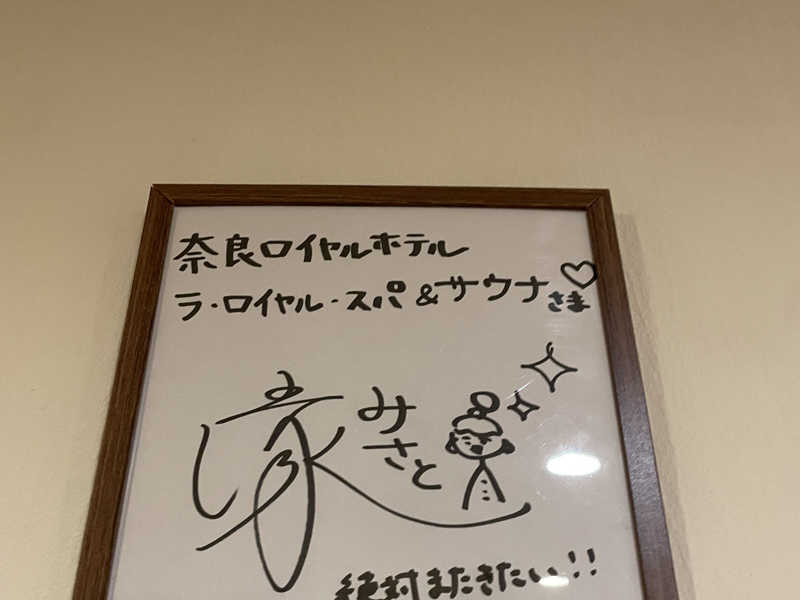 奈良ロイヤルホテル
ラ・ロイヤル・スパ&サウナさま♡
みさと
絶対またきたい!!